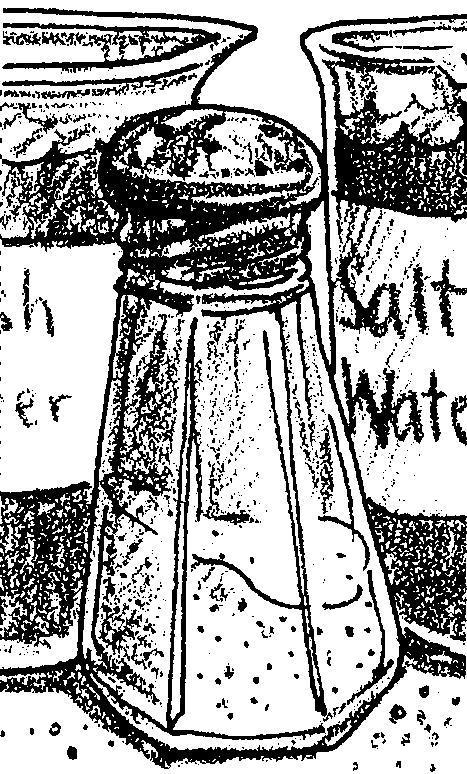 sh
er
Salt
Wate